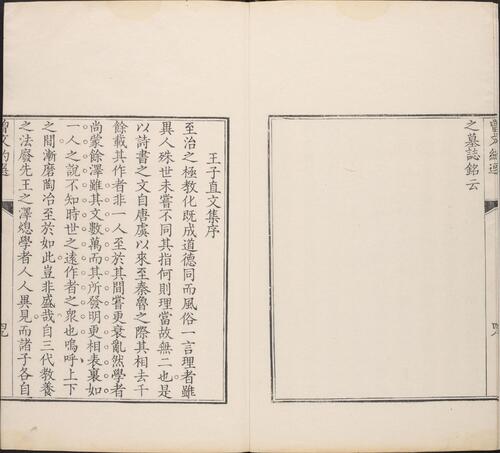 之墓誌銘云
曾文約選
四八
王子直文集序
至治之極教化既成道德同而風俗一言理者雖
異人殊世未嘗不同其指何則理當故無二也是
以詩書之文自唐虞以來至秦魯之際其相去千
餘載其作者非一人至於其間嘗更衰亂然學者
尚蒙餘澤雖其文數萬而其所發明更相表裏如
一人之說不知時世之遠作者之衆也嗚呼上下
之間漸磨陶冶至於如此豈非盛哉自三代教養
之法廢先王之澤熄學者人人異見而諸子各自
曾文約選
四九